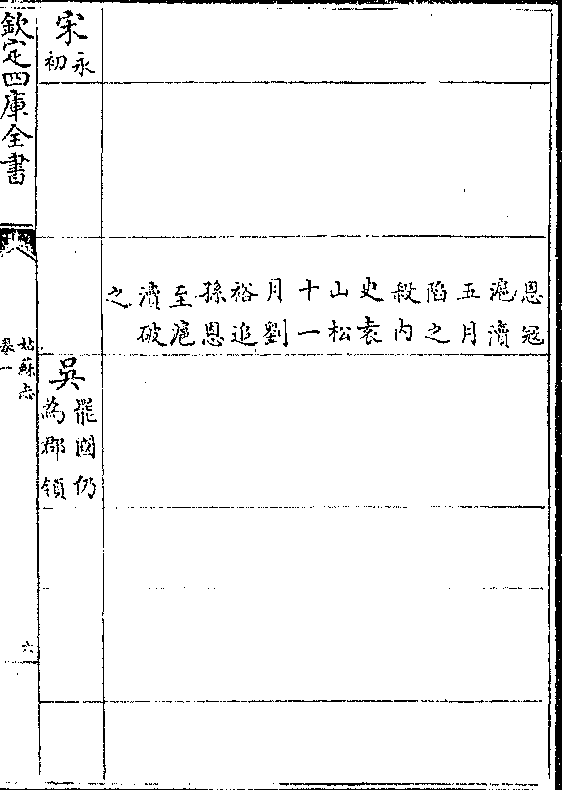 恩寇
滬瀆
五月
陷之
殺内
史袁
山松
十一
月劉
裕追
孫恩
至滬
瀆破
之
宋
永
初
吳
罷國仍
為郡領
欽定四庫全書
姑蘇志
卷一
六